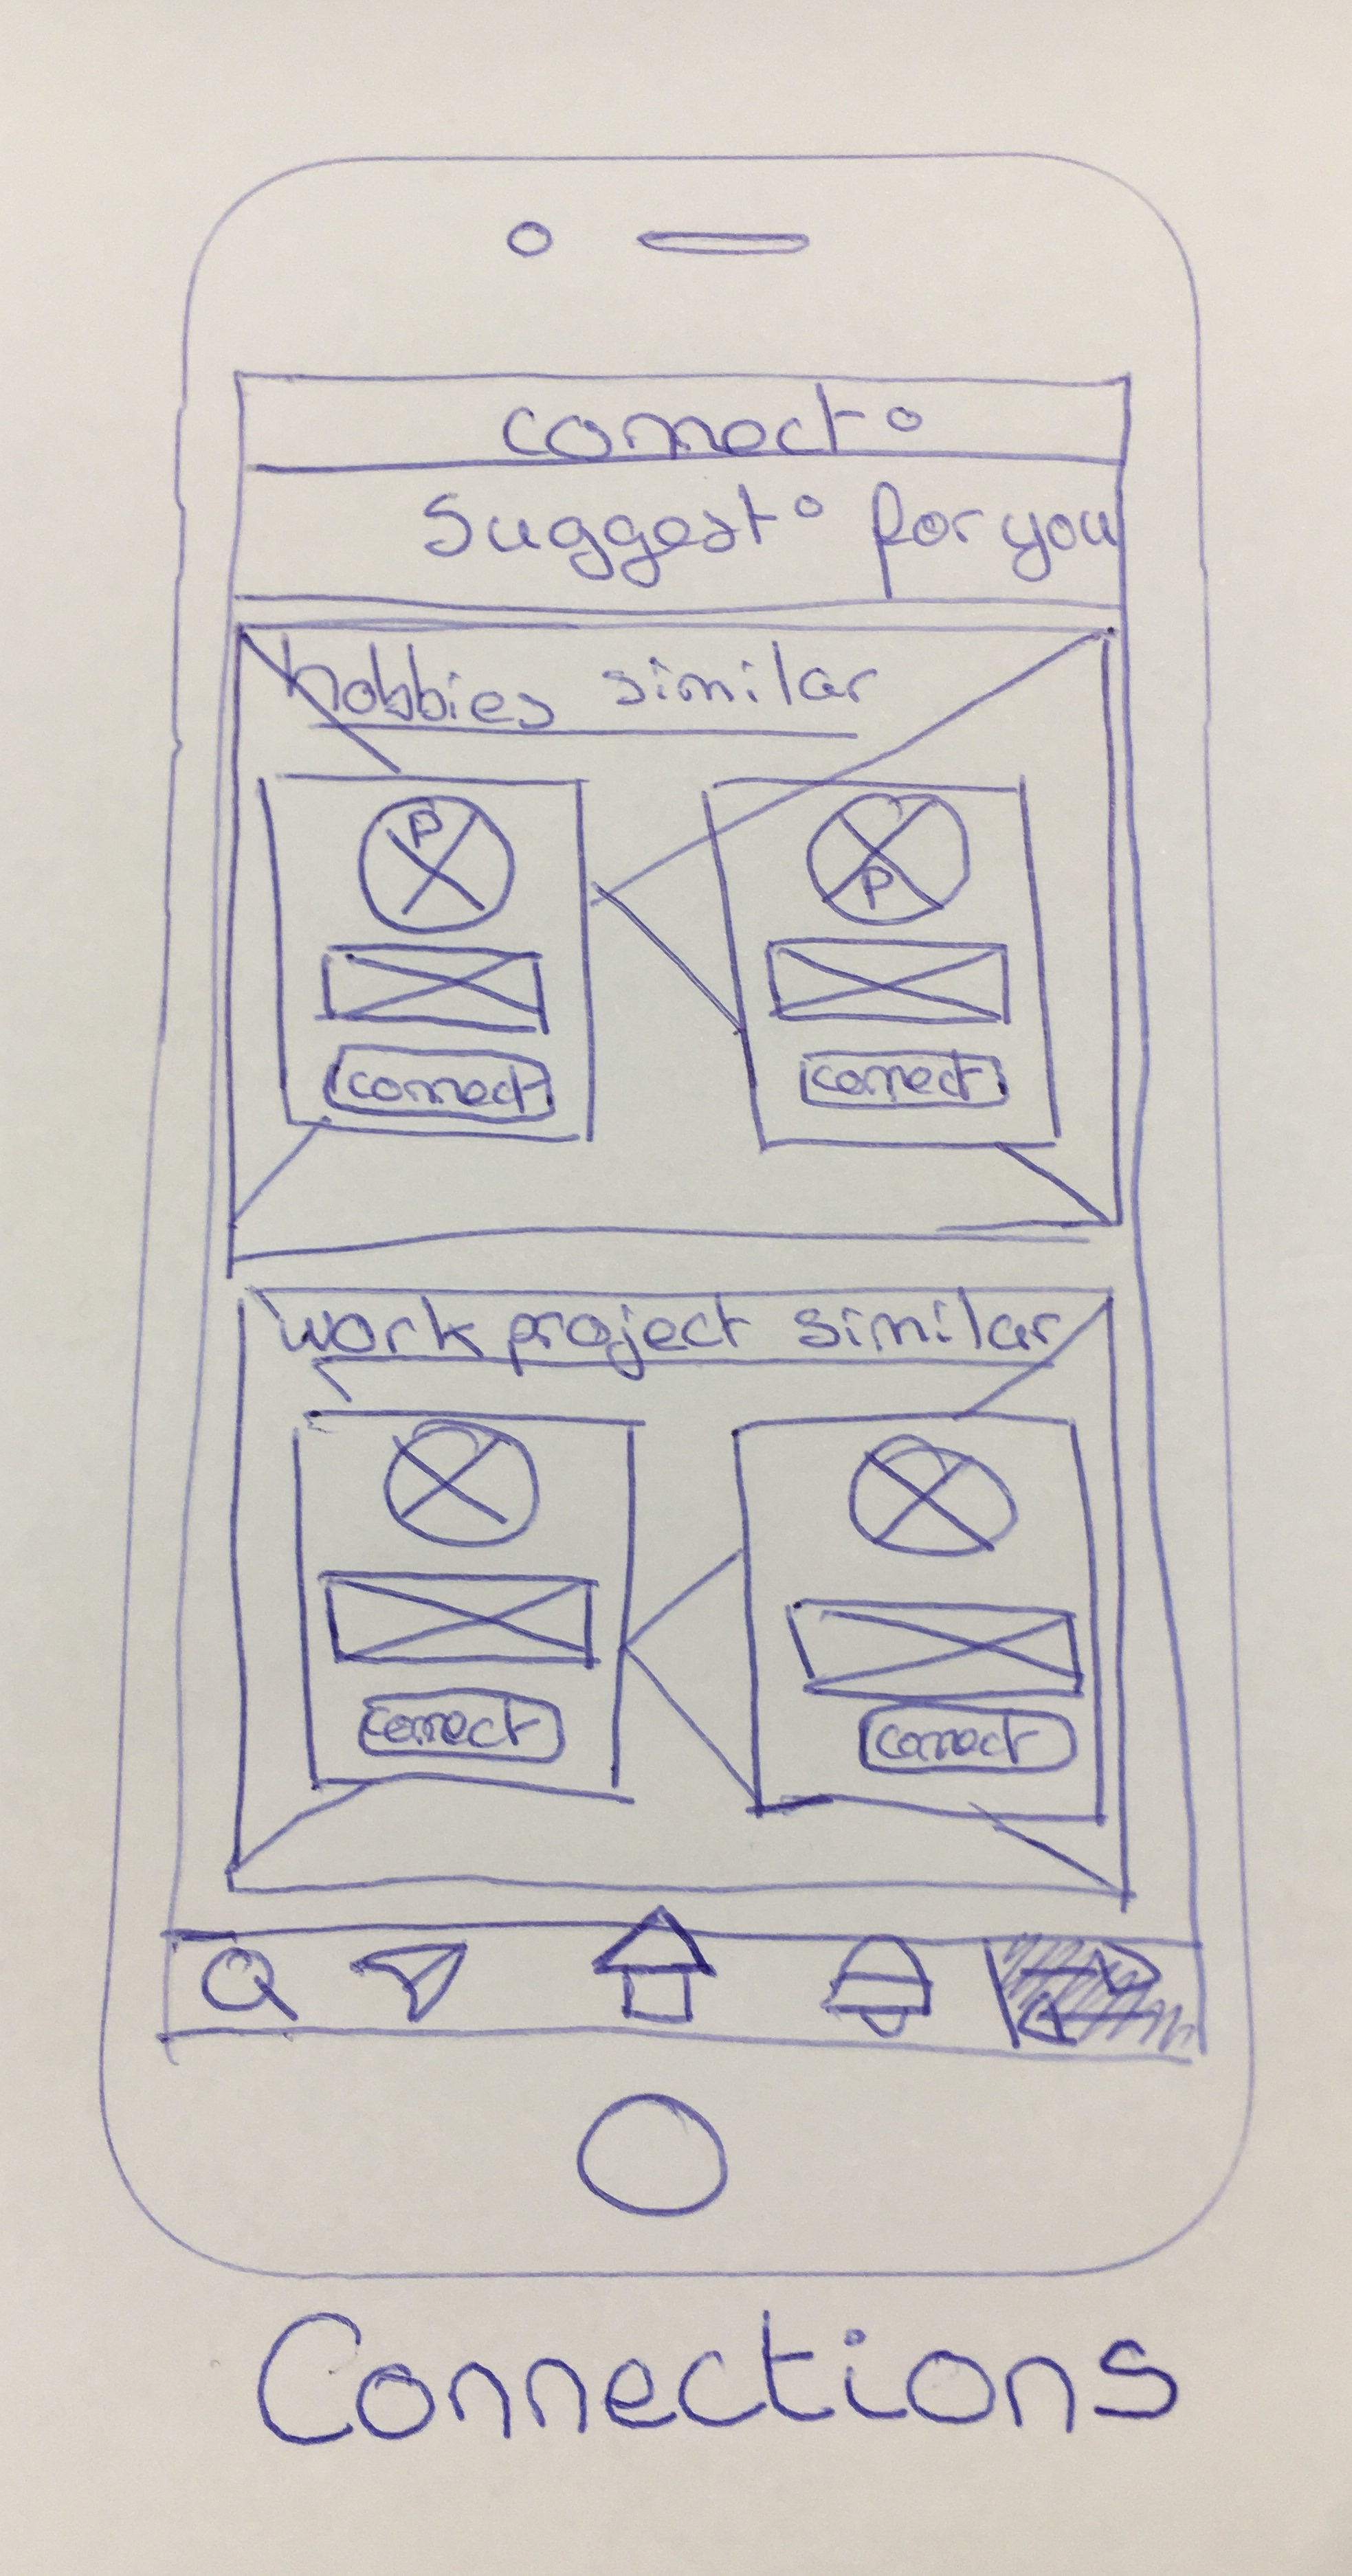 connect°
Suggest° for you
hobbies similar
P P
connect connect
work project similar
connect connect
Connections